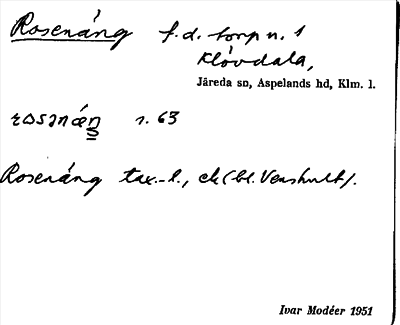 Rosenäng f.d. torp n. 1
Klövdala,
Järeda sn, Aspelands hd, Klm. l.
r. 63
Rosenäng tax.-l., ek (bl. Venshult).
Ivar Modéer 1951